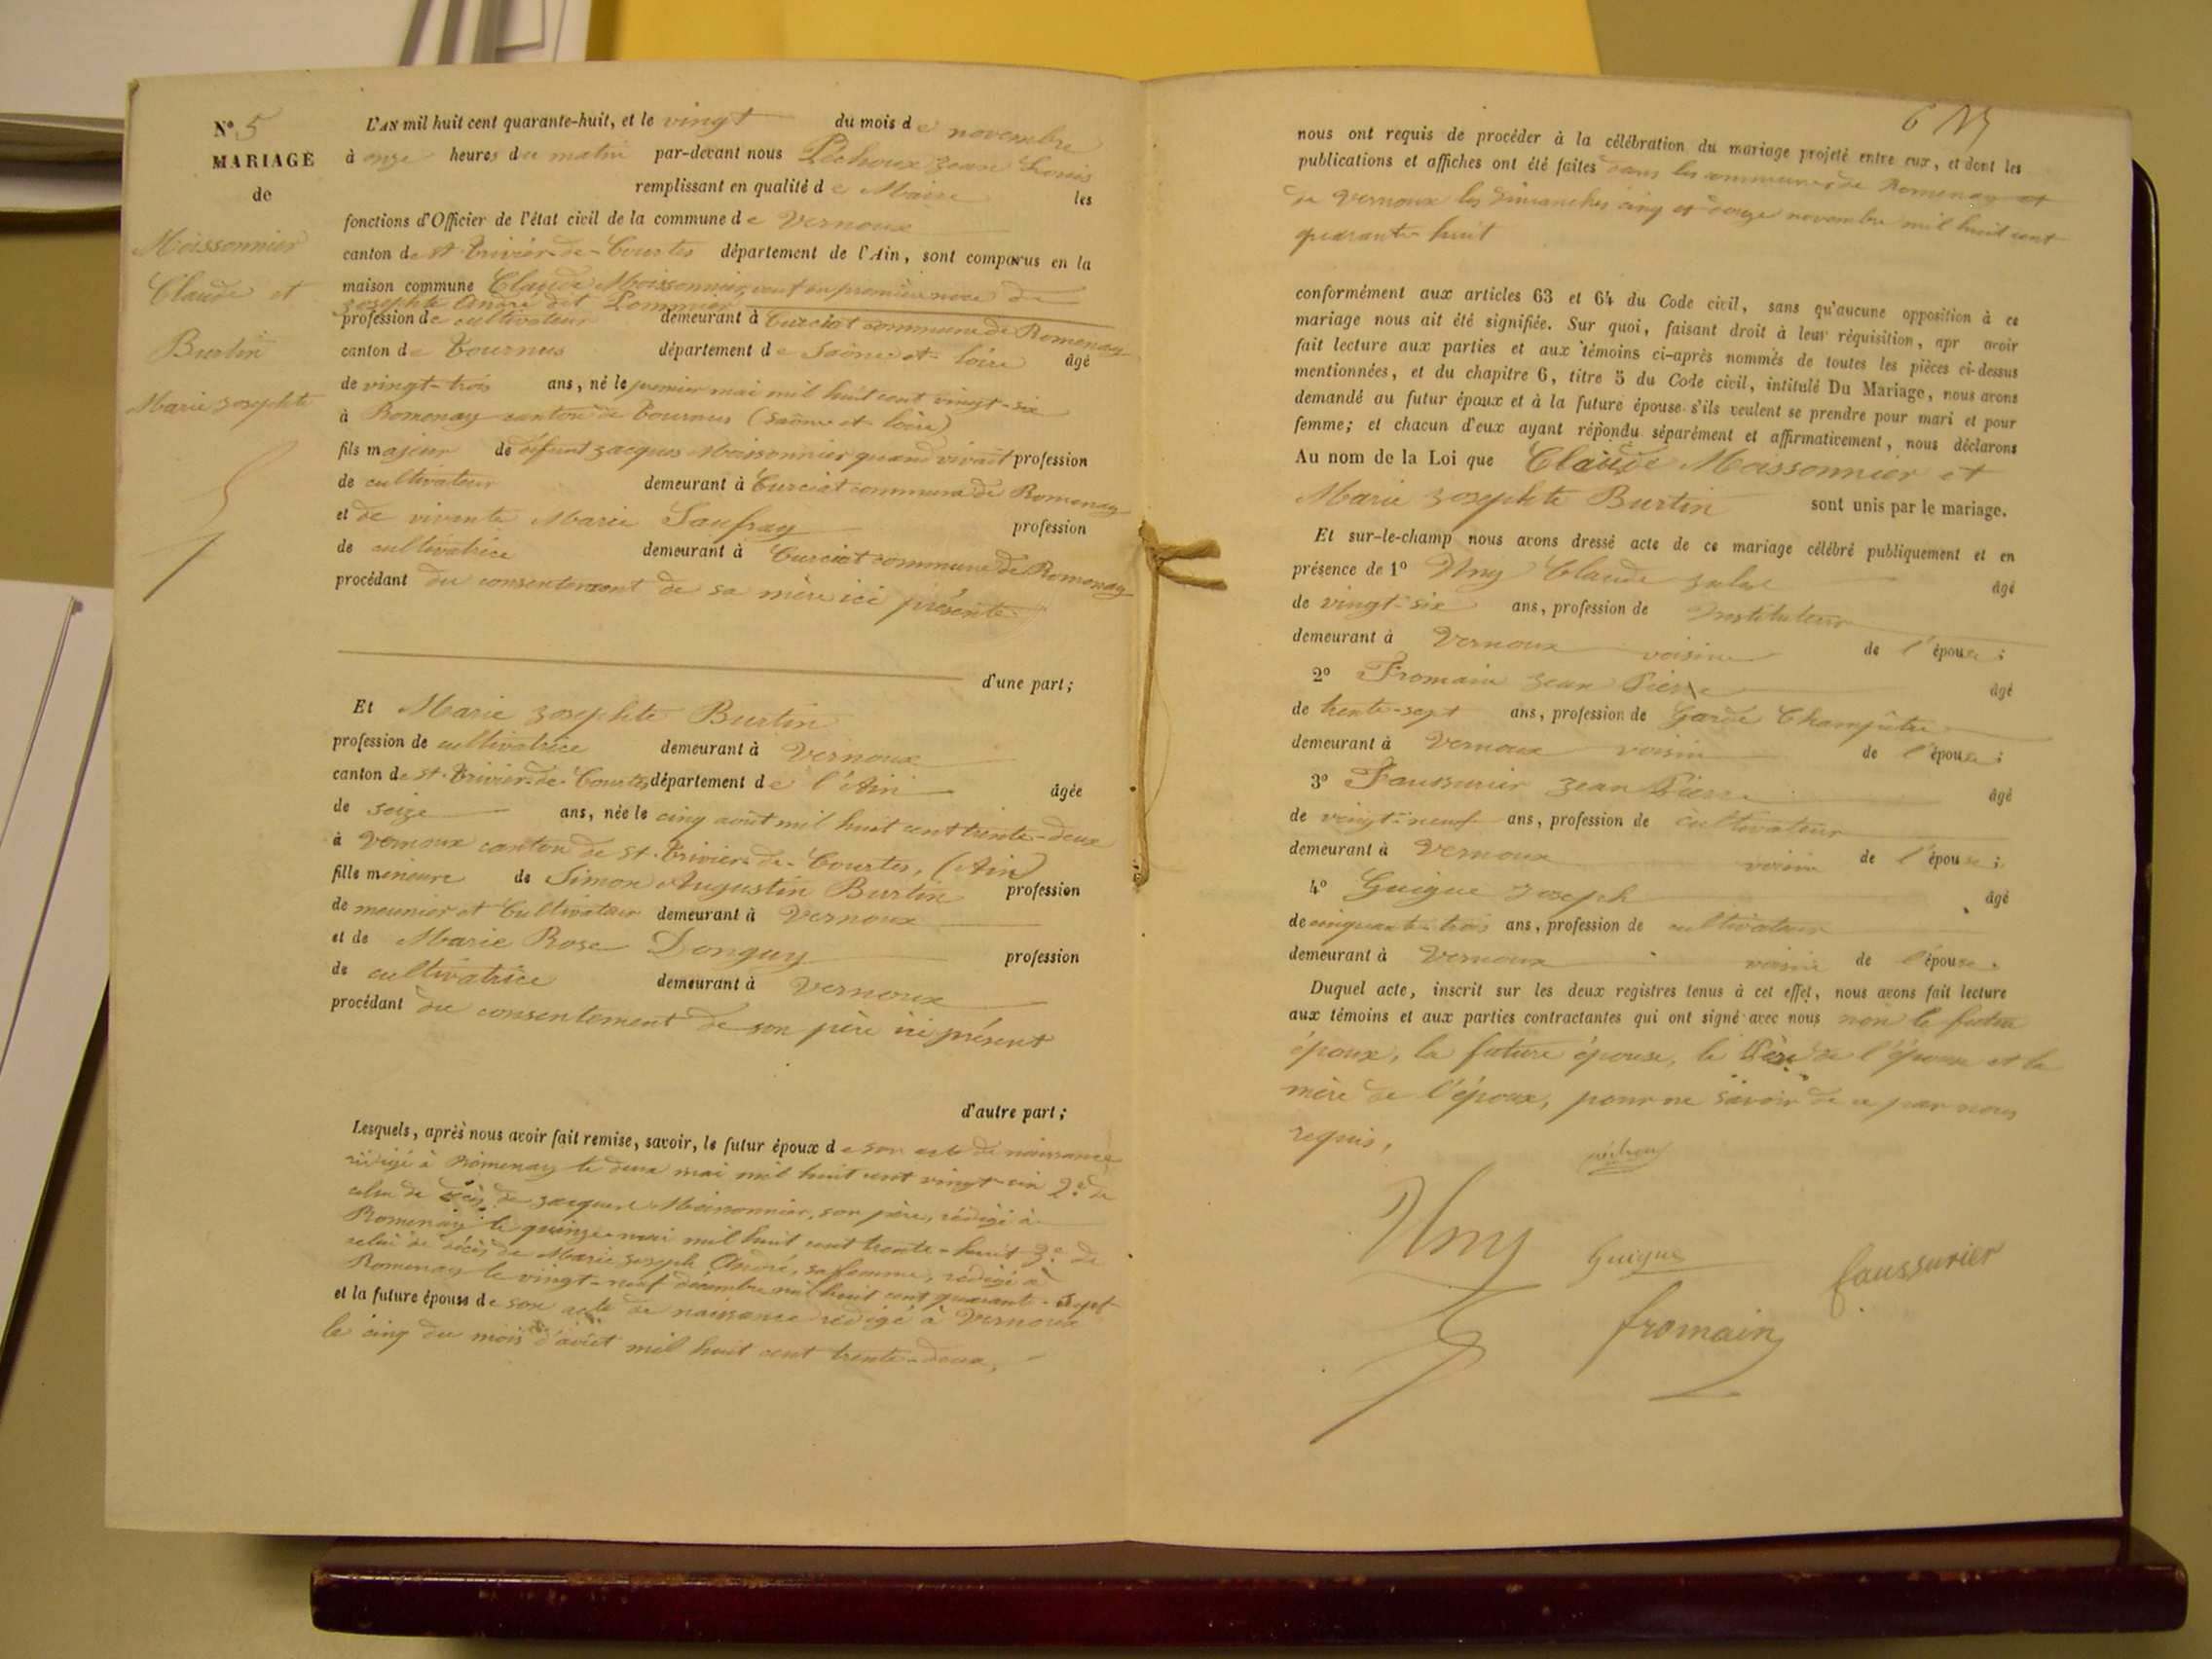 N° 5
MARIAGE
de
Moissonnier
Claude et
Burtin
Marie Josephte
L'AN mil huit cent quarante-huit, et le vingt du mois de novembre
à onze heures du matin par-devant nous Péchoux Jean Louis
remplissant en qualité de Maire les
fonctions d'Officier de l'état civil de la commune de Vernoux
canton de St Trivier-de-Courtes département de l'Ain, sont comparus en la
maison commune Claude Moissonnier, veuf en première noce de
Josephte André dit Lommier
profession de cultivateur demeurant à Curciat commune de Romenay
canton de Tournus département de Saône et Loire âgé
de vingt-trois ans, né le premier mai mil huit cent vingt-six
à Romenay canton de Tournus (Saône et Loire)
fils majeur de défunt Jacques Moissonnier quand vivait profession
de cultivateur demeurant à Curciat commune de Romenay
et de vivante Marie profession
de cultivatrice demeurant à Curciat commune de Romenay
procédant du consentement de sa mère ici présente
d'une part;
Et Marie Josephte Burtin
profession de cultivatrice demeurant à Vernoux
canton de St. Trivier-de-Courtes département de l'Ain âgée
de seize ans, née le cinq août mil huit cent trente-deux
à Vernoux canton de St. Trivier-de-Courtes, (Ain)
fille mineure de Simon Augustin Burtin profession
de meunier et Cultivateur demeurant à Vernoux
et de Marie Rose Donguy profession
de cultivatrice demeurant à Vernoux
procédant du consentement de son père ici présent
d'autre part;
Lesquels, après nous avoir fait remise, savoir, le futur époux de son acte de naissance
rédigé à Romenay le deux mai mil huit cent vingt-six 2.° de
celui de décès de Jacques Moissonnier, son père, rédigé à
Romenay le quinze mai mil huit cent trente-huit 3.° de
celui de décès de Marie Joseph André, sa femme, rédigé à
Romenay le vingt-neuf décembre mil huit cent quarante-sept
et la future épouse de son acte de naissance rédigé à Vernoux
le cinq du mois d'août mil huit cent trente-deux,
6
nous ont requis de procéder à la célébration du mariage projeté entre eux, et dont les
publications et affiches ont été faites dans les communes de Romenay et
de Vernoux les dimanches cinq et douze novembre mil huit cent
quarante-huit
conformément aux articles 63 et 64 du Code civil, sans qu'aucune opposition à ce
mariage nous ait été signifiée. Sur quoi, faisant droit à leur réquisition, apr avoir
fait lecture aux parties et aux témoins ci-après nommés de toutes les pièces ci-dessus
mentionnées, et du chapitre 6, titre 5 du Code civil, intitulé Du Mariage, nous avons
demandé au futur époux et à la future épouse s'ils veulent se prendre pour mari et pour
femme; et chacun d'eux ayant répondu séparément et affirmativement, nous déclarons
Au nom de la Loi que Claude Moissonnier et
Marie Josephte Burtin sont unis par le mariage.
Et sur-le-champ nous avons dressé acte de ce mariage célébré publiquement et en
présence de 1° Uny Claude âgé
de vingt-six ans, profession de Instituteur
demeurant à Vernoux voisin de l'épouse;
2° Fromain Jean Pierre âgé
de trente-sept ans, profession de Garde Champêtre
demeurant à Vernoux voisin de l'épouse;
3° Faussurier Jean Pierre âgé
de vingt-neuf ans, profession de cultivateur
demeurant à Vernoux voisin de l'épouse;
4° Guigue Joseph âgé
de cinquante-trois ans, profession de cultivateur
demeurant à Vernoux voisin de l'épouse.
Duquel acte, inscrit sur les deux registres tenus à cet effet, nous avons fait lecture
aux témoins et aux parties contractantes qui ont signé avec nous non le futur
époux, la future épouse, le Père de l'épouse et la
mère de l'époux, pour ne savoir de ce par nous
requis,
Uny
Guigue
faussurier
fromain